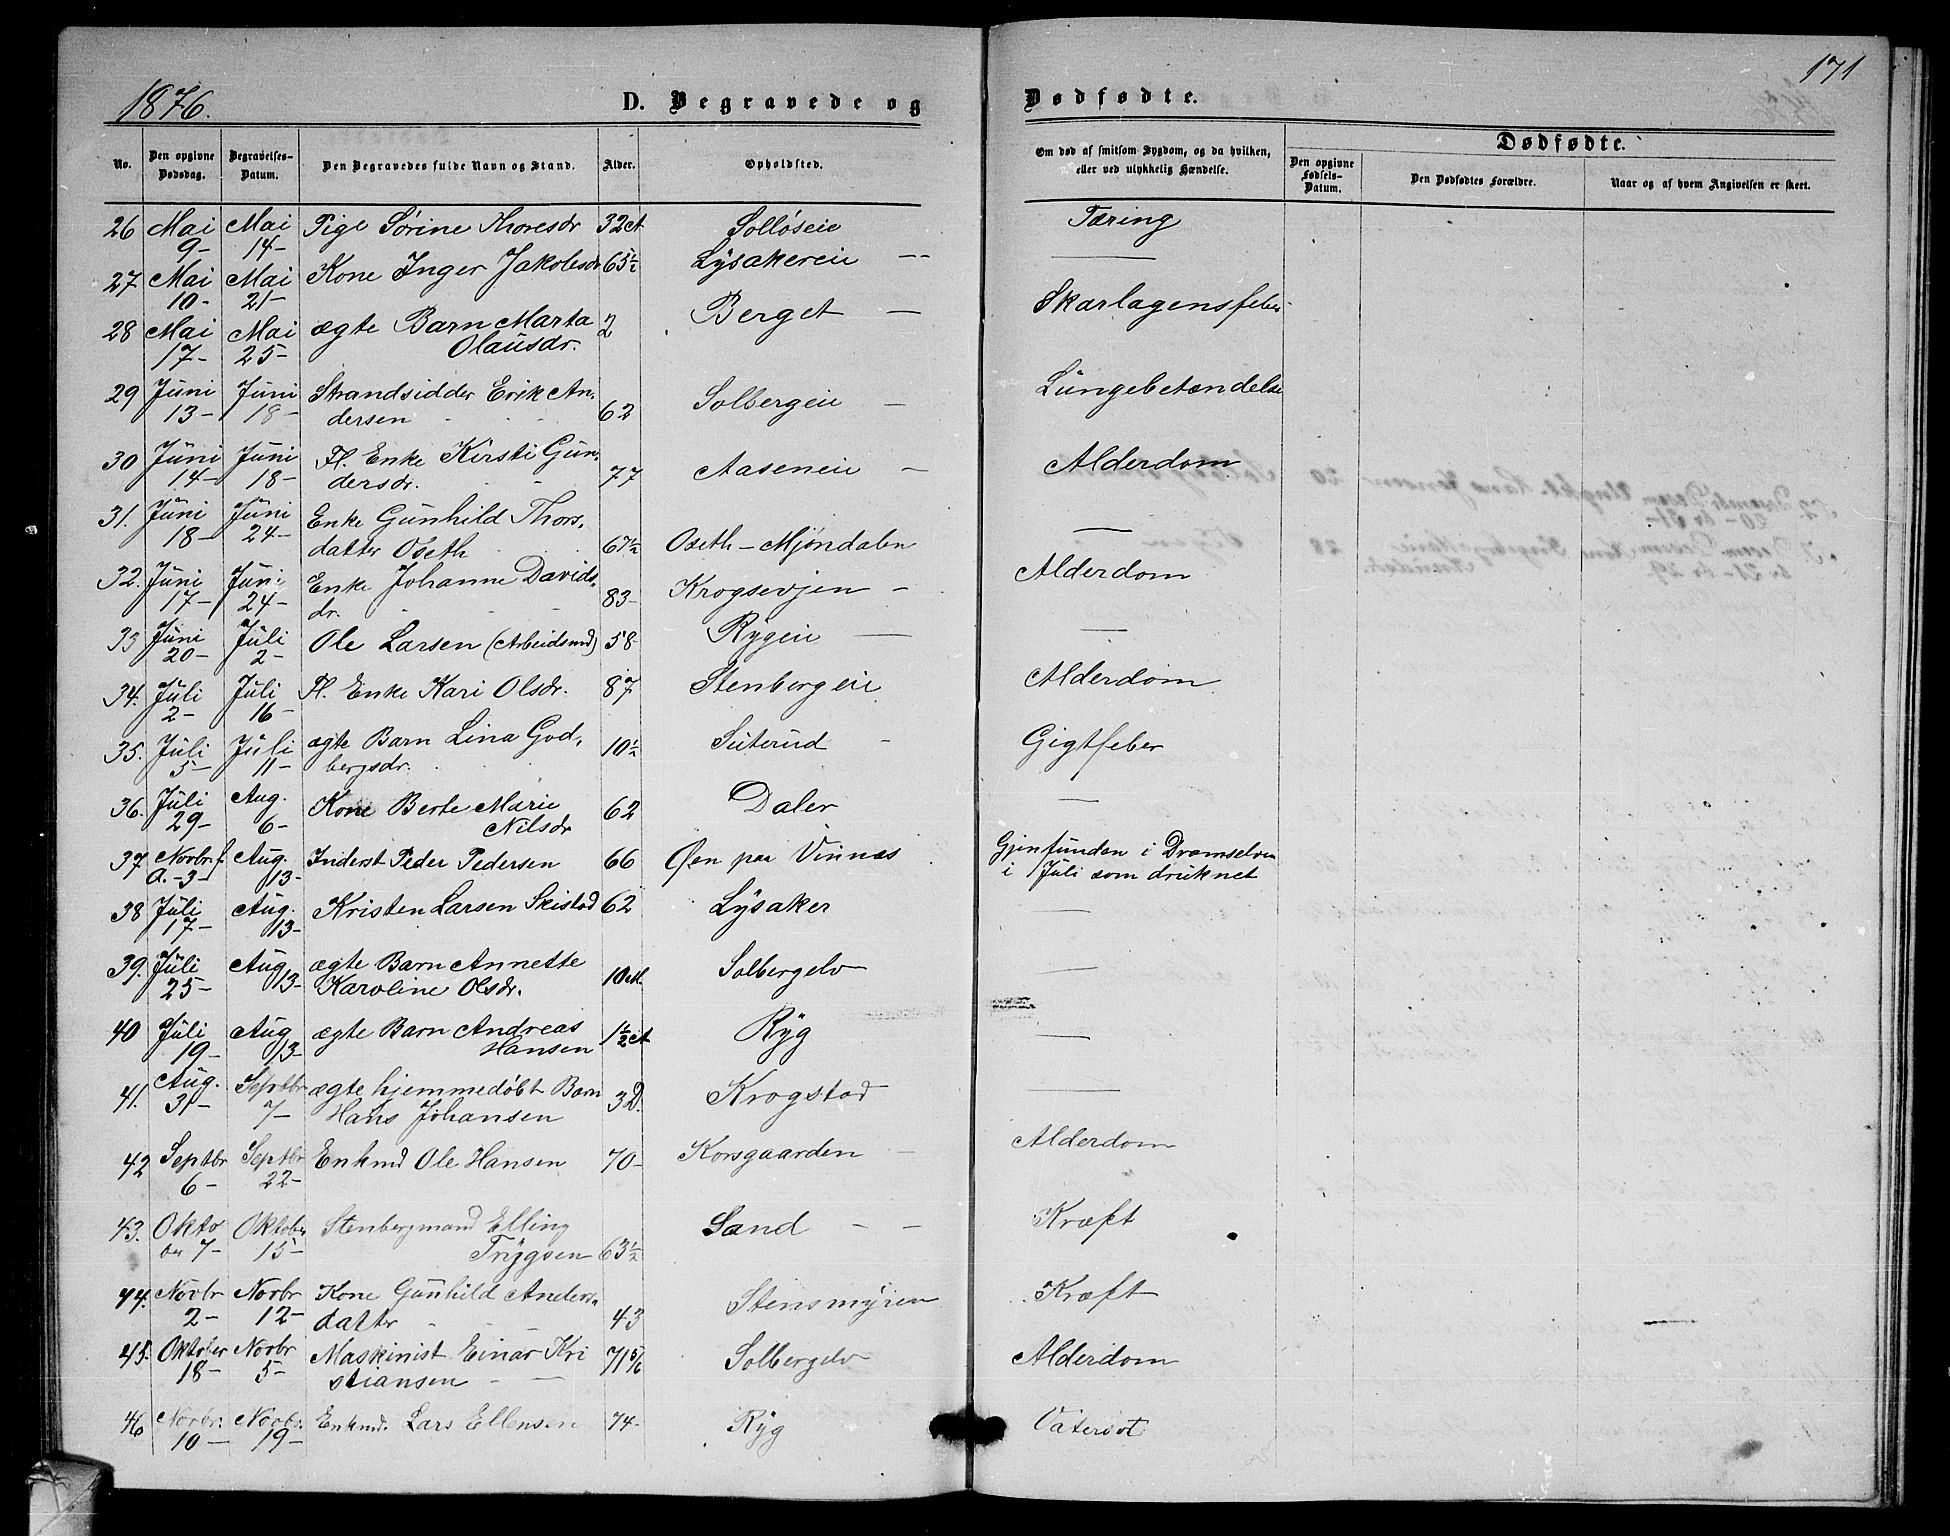 1876.
D. Begravede og
Dødfødte.
171
No.
Den opgivne Dødsdag.
Begravelses-Datum.
Den Begravedes fulde Navn og Stand.
Alder.
Opholdsted.
Om død af smitsom Sygdom, og da hvilken, eller ved ulykkelig Hændelse.
Dødfødte.
Den opgivne Fødsels-Datum.
Den Dødfødtes Forældre.
Naar og af hvem Angivelsen er skeet.
26 Mai 9- Mai 14- Pige Sørine Thoresdr 32 A Solløseie Tæring
27 Mai 10- Mai 21- Kone Inger Jakobsdr 65½ Lysakereie -- —
28 Mai 17- Mai 25- ægte Barn Marta Olausdr. 2 Berget — Skarlagensfeber
29 Juni 13- Juni 18- Strandsidder Erik Andersen 62 Solbergeie — Lungebetændelse
30 Juni 14- Juni 18- Fl. Enke Kirsti Gundersdr. 77 Aaseneie — Alderdom
31. Juni 18- Juni 24- Enke Gunhild Thorsdatter Oseth 67½ Oseth - Mjøndalen —
32. Juni 17- Juni 24- Enke Johanne Davidsdr. 83- Krogsevjen - Alderdom
33 Juni 20- Juli 2- Ole Larsen (Arbeidsmd) 58- Rygeie — —
34. Juli 2- Juli 16- Fl. Enke Kari Olsdr. 87 Stenbergeie Alderdom
35. Juli 5- Juli 11- ægte Barn Lina Godbergsdr. 10½ Suterud - Gigtfeber
36. Juli 29- Aug. 6- Kone Berte Marie Nilsdr 62 Daler —
37. Novbr. f. A. -3- Aug. 13- Inderst Peder Pedersen 66 Øen paa Vinnæs Gjenfunden i Dramselven i Juli som druknet
38 Juli 17- Aug. 13- Kristen Larsen Skistad 62 Lysaker —
39. Juli 25- Aug 13- ægte Barn Annette Karoline Olsdr. 10 Solbergelv —
40 Juli 19- Aug 13- ægte Barn Andreas Hansen 1½ A Ryg —
41. Aug. 31- Septbr 7- ægte hjemmedøbt Barn Hans Johansen 3 D. Krogstad —
42 Septbr 6- Septbr 22- Enkmd Ole Hansen 70- Korsgaarden - Alderdom
43. Oktober 7- Oktober 15- Stenbergmand Elling Trygsen 63½ Sand - - Kræft
44. Novbr 2- Novbr 12- Kone Gunhild Andersdatter 43 Stensmyren Kræft
45. Oktober 18- Novbr 5- Maskinist Einar Kristiansen 71 5/6 Solbergelv Alderdom
46 Novbr. 10- Novbr. 19- Enkmd. Lars Ellensen 74- Ryg Vatersot